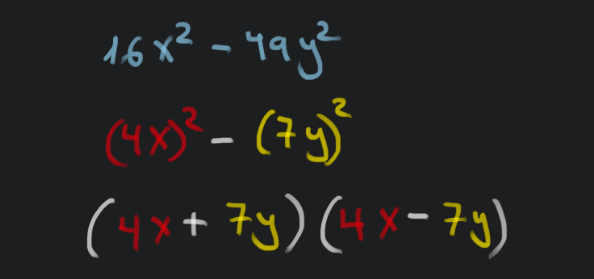 16x² - 49y²
(4x)² - (7y)²
(4x + 7y)(4x - 7y)